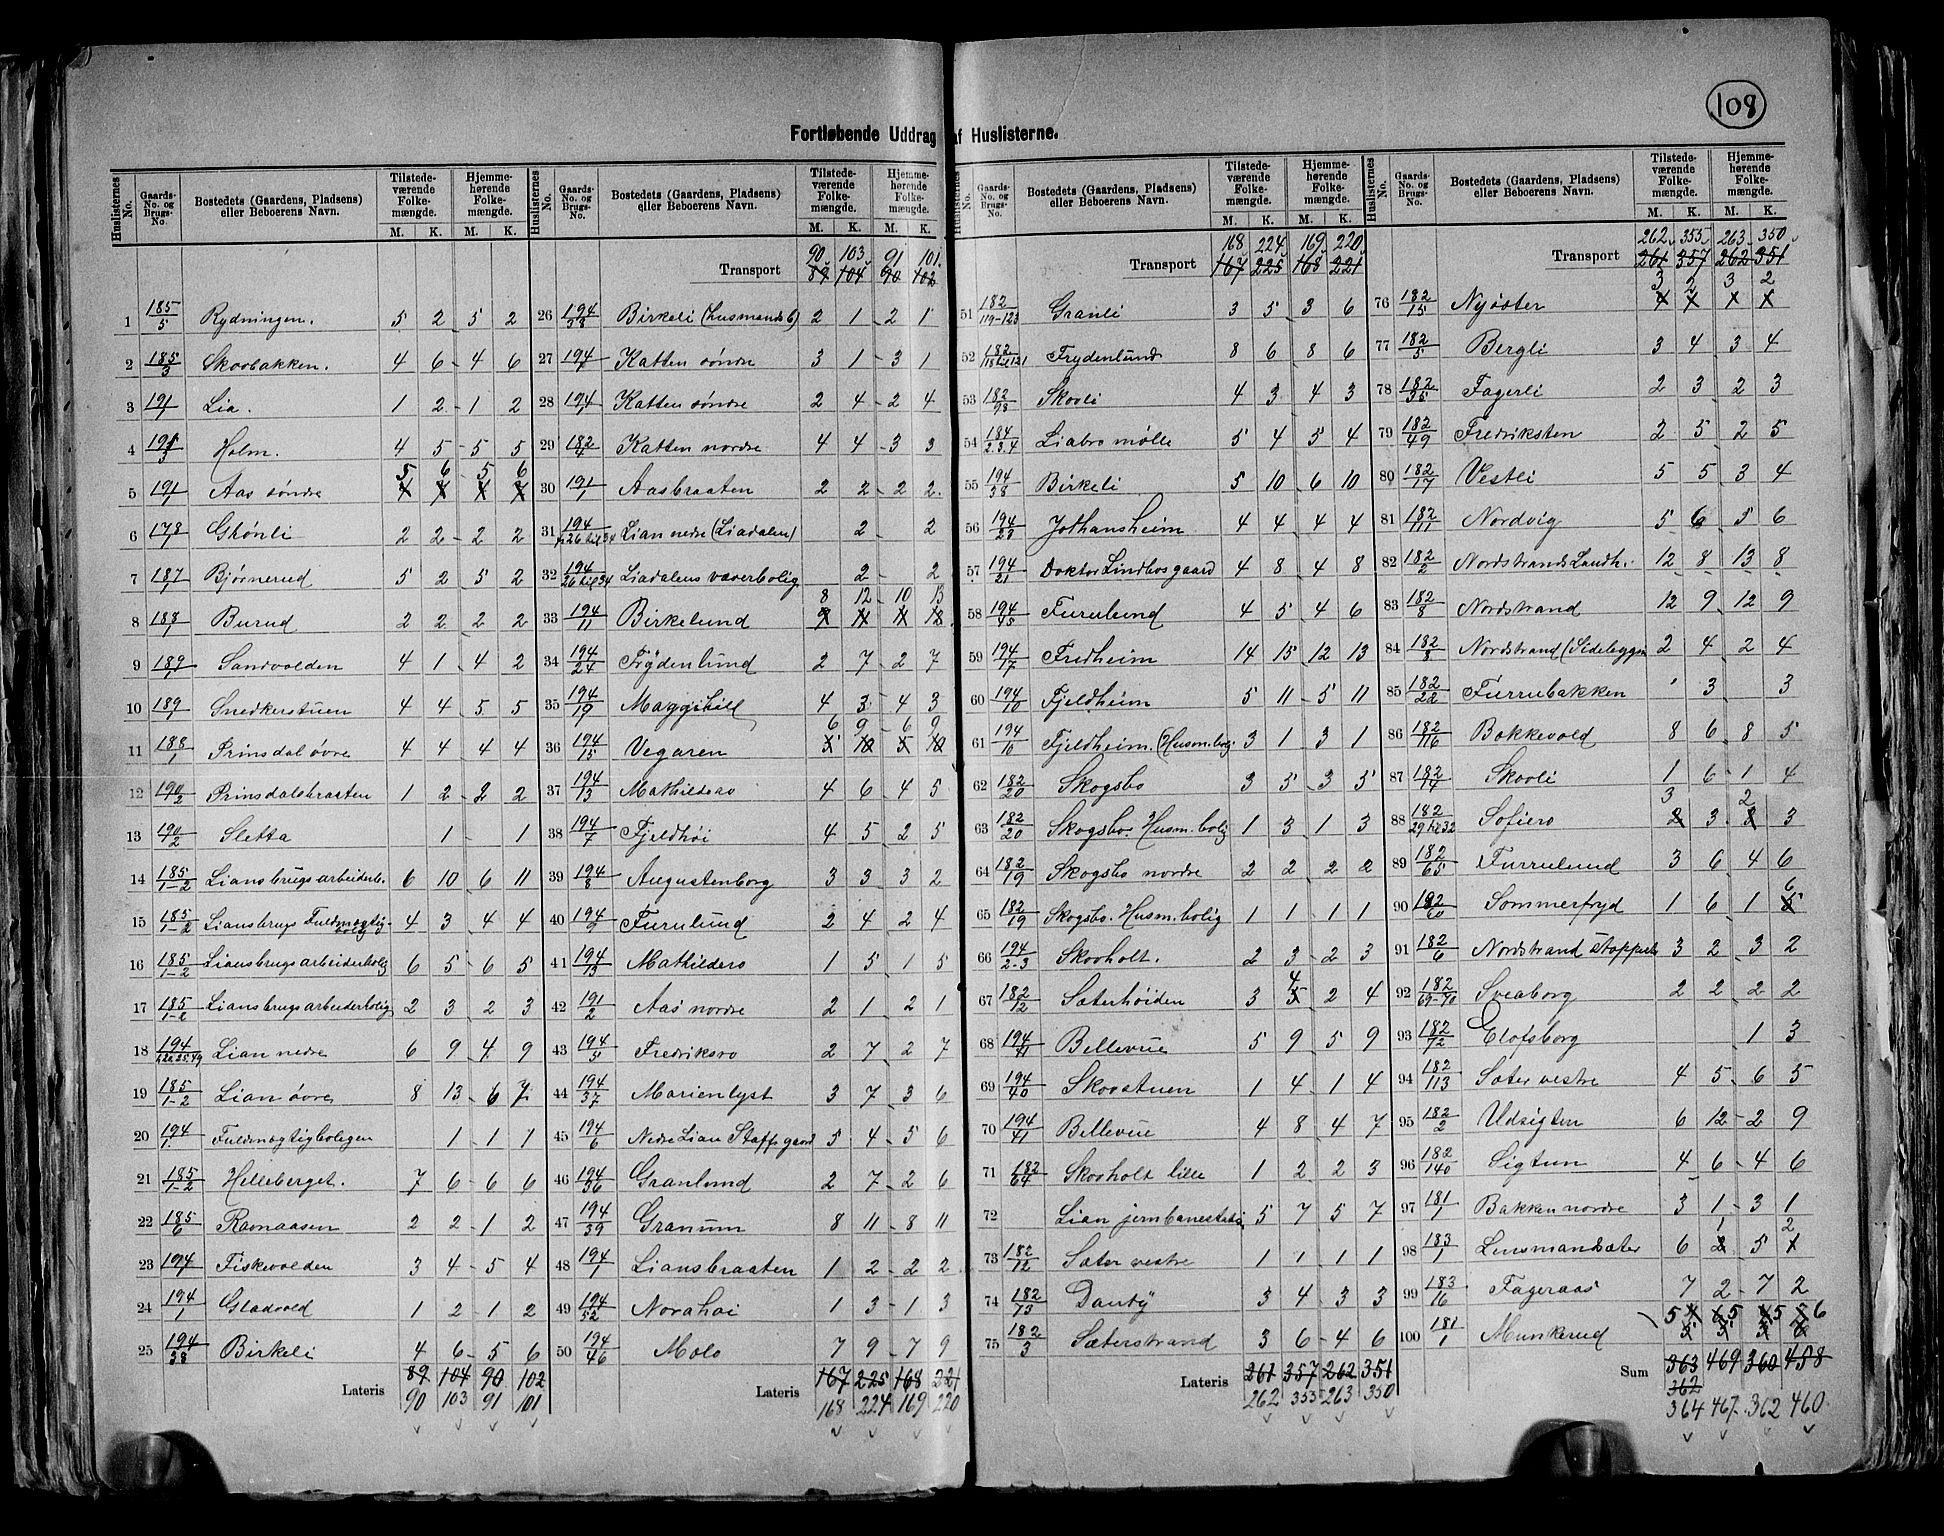 108
Fortløbende Uddrag af Huslisterne.
Huslisternes No. | Gaards-No. og Brugs-No. | Bostedets (Gaardens, Pladsens) eller Beboerens Navn. | Tilstedeværende Folkemængde. M. K. | Hjemmehørende Folkemængde. M. K.
1 185/5 Rydningen. 5 2 5 2
2 185/3 Skovbakken. 4 6 4 6
3 191/1 Lia. 1 2 1 2
4 Holm. 4 5 5 5
5 191/1 Aas søndre 5 6 5 6
6 178/1 Grønli 2 2 2 2
7 187/1 Bjørnerud 5 2 5 2
8 188/1 Burud 2 2 2 2
9 189/1 Sandvolden 4 1 4 2
10 189/1 Snedkerstuen 4 4 5 5
11 188/1 Prinsdal øvre 4 4 4 4
12 190/2 Prinsdalsbraaten 1 2 2 2
13 190/2 Sletta 1 1
14 185/1-2 Liansbrugs arbeiderb. 6 10 6 11
15 185/1-2 Liansbrugs Fuldmægtigbolig 4 3 4 4
16 185/1-2 Liansbrugs arbeiderbolig 6 5 6 5
17 185/1-2 Liansbrugs arbeiderbolig 2 3 2 3
18 Lian nedre 6 9 4 9
19 185/1-2 Lian øvre 8 13 6 7
20 194/1 Fuldmægtigboligen 1 1 1
21 185/1-2 Helleberget. 7 6 6 6
22 185/6 Ravnaasen 2 2 1 2
23 194/1 Fiskevolden 3 4 5 4
24 194/1 Gladvold 1 2 1 2
25 194/38 Birkeli 4 6 5 6
Lateris 89 104 90 102
90 103 91 101
Transport 90 103 91 101
89 104 90 102
26 194/38 Birkeli (Husmandsb) 2 1 2 1
27 194/1 Katten søndre 3 1 3 1
28 194/1 Katten søndre 2 4 2 4
29 182/4 Katten nordre 4 4 3 3
30 191/1 Aasbraaten 2 2 2 2
31 194/26 til 34 Lian nedre (Liadalen) 2 2
32 194/26 til 34 Liadalens væverbolig 2 2
33 194/11 Birkelund 8 12 10 13
34 194/24 Frydenlund 2 7 2 7
35 194/19 Maggihill 4 3 4 3
36 194/15 Vegaren 6 9 6 9
37 194/13 Mathildero 4 6 4 5
38 194/7 Fjeldhøi 4 5 2 5
39 194/8 Augustenborg 3 3 3 2
40 194/2 Furulund 2 4 2 4
41 194/13 Mathildero 1 5 1 5
42 191/2 Aas nordre 2 1 2 1
43 194/51 Fredriksro 2 7 2 7
44 194/37 Marienlyst 3 7 3 6
45 194/6 Nedre Lian Stoppsgaard 5 4 5 6
46 194/56 Granlund 2 7 2 6
47 194/39 Granum 8 11 8 11
48 194/1 Liansbraaten 1 2 2 2
49 194/52 Norahøi 1 3 1 3
50 194/46 Molo 7 9 7 9
Lateris 167 225 168 221
168 224 169 220
Transport 168 224 169 220
167 225 168 221
51 182/119-123 Granli 3 5 3 6
52 182/118 til 121 Frydenlund 8 6 8 6
53 182/98 Skovli 4 3 4 3
54 184/2.3.4 Liabro mølle 5 4 5 4
55 194/38 Birkeli 5 10 6 10
56 194/23 Johansheim 4 4 4 4
57 194/21 Doktor Lindbosgaard 4 8 4 8
58 194/45 Furulund 4 5 4 6
59 194/17 Fredheim 14 15 12 13
60 194/10 Fjeldheim 5 11 5 11
61 194/10 Fjeldheim (Husm.bolig 3 1 3 1
62 182/20 Skogsbo 3 5 3 5
63 182/20 Skogsbo. Husm.bolig 1 3 1 3
64 182/19 Skogsbo nordre 2 2 2 2
65 182/19 Skogsbo. Husm.bolig 1 1 1 1
66 194/2-3 Skovholt. 2 3 2 3
67 182/12 Sæterhøiden 3 4 2 4
68 194/41 Bellevue 5 9 5 9
69 194/40 Skovstuen 1 4 1 4
70 194/41 Bellevue 4 8 4 7
71 182/64 Skovholt lille 1 2 2 3
72 Lian jernbanestation 5 7 5 7
73 182/12 Sæter vestre 1 1 1 1
74 182/73 Danby 3 4 3 3
75 182/3 Sæterstrand 3 6 4 6
Lateris 261 357 262 351
262 355 263 350
Transport 262 355 263 350
261 357 262 351
76 182/15 Nyöster 3 2 3 2
77 182/5 Bergli 3 4 3 4
78 182/35 Fagerli 2 3 2 3
79 182/49 Fredriksten 2 5 2 5
80 182/17 Vestli 5 5 3 4
81 182/111 Nordvig 5 6 5 6
82 182/2 Nordstrands Landh. 12 8 13 8
83 182/8 Nordstrand 12 9 12 9
84 182/8 Nordstrand (Sidebygn 2 4 2 4
85 182/22 Furrubakken 3 3
86 182/116 Bakkevold 8 6 8 5
87 182/14 Skovli 1 6 1 4
88 182/29 til 32 Sofiero 3 3 2 3
89 182/65 Furrulund 3 6 4 6
90 182/60 Sommerfryd 1 6 1 6
91 182/6 Nordstrand Stoppest. 3 2 3 2
92 182/69-70 Sveaborg 2 2 2 2
93 182/72 Elofsborg 1 3
94 182/113 Sæter vestre 4 5 6 5
95 182/2 Udsigten 6 12 2 9
96 182/140 Sigtun 4 6 4 6
97 181/1 Bakken nordre 3 1 3 1
98 183/1 Lensmandsæter 6 1 5 2
99 183/16 Fageraas 7 2 7 2
100 181/1 Munkerud 5 5 5 6
Sum 363 469 360 458
362
364 467 362 460